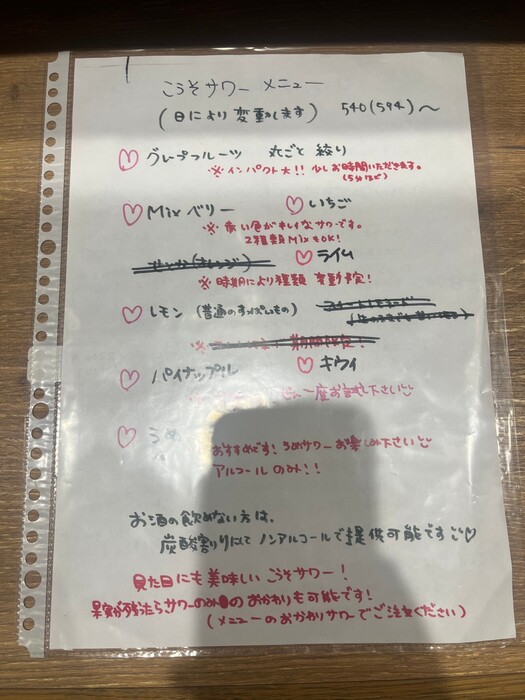 こうそサワー メニュー
(日により変動します) 540(594)～
♡ グレープフルーツ 丸ごと絞り
※インパクト大!! 少しお時間いただきます。
(5分ほど)
♡ Mixベリー ♡ いちご
※赤い色がキレイなサワーです。
2種類MixもOK!
♡ ライム
※時期により種類 変動予定!
♡ レモン (普通のすっぱいもの)
♡ パイナップル ♡ キウイ
一度お試し下さい
♡ うめ
おすすめです! うめサワーお楽しみ下さい
アルコールのみ!!
お酒の飲めない方は、
炭酸割りにて ノンアルコールで提供可能です♡
見た目にも美味しい こうそサワー!
果実が残ったらサワーのみのおかわりも可能です!
(メニューのおかわりサワーでご注文ください)